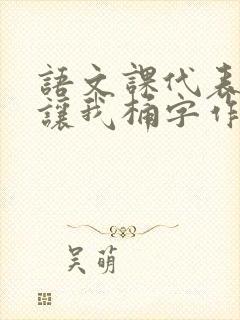 語文課代表
讓我桶字作
吴萌